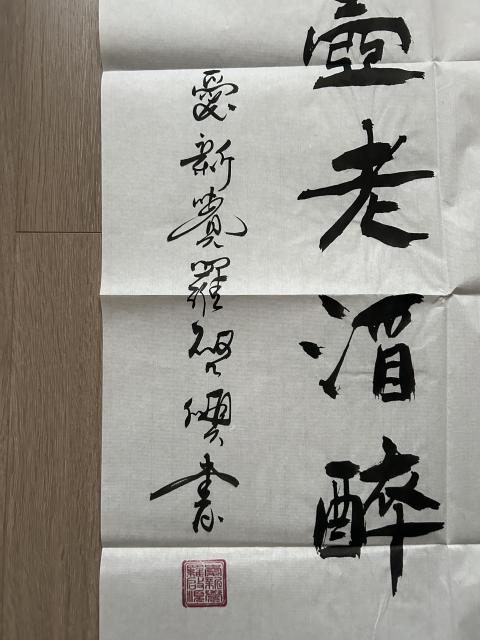 壺老酒醉
愛新覺羅書